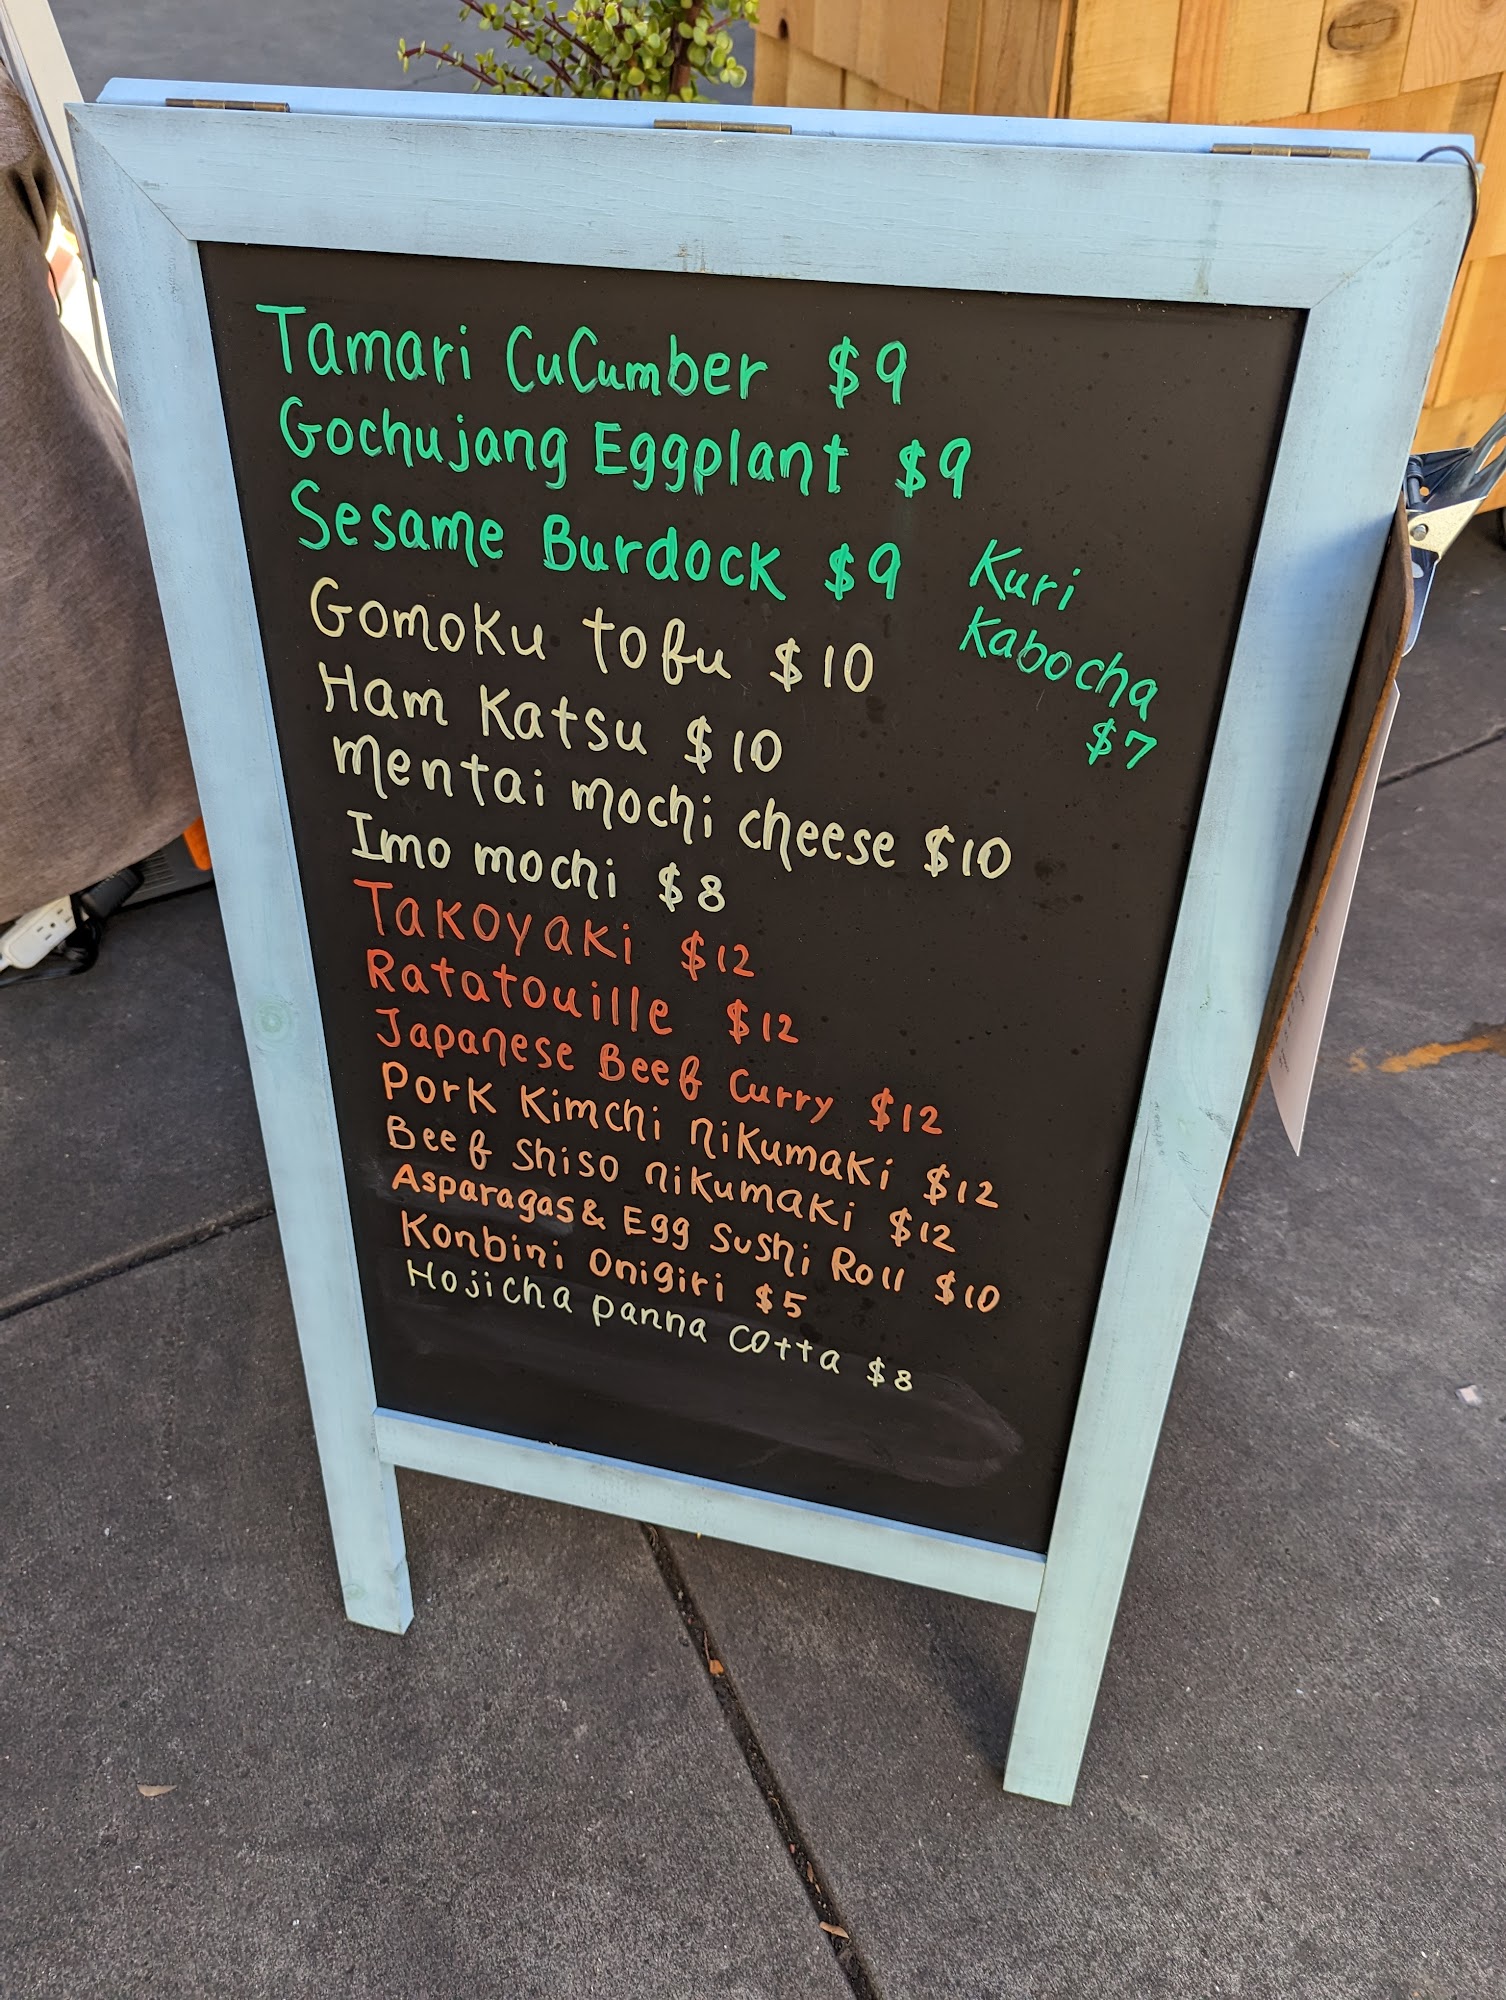 Tamari CuCumber $9
Gochujang Eggplant $9
Sesame Burdock $9
Kuri
Kabocha
$7
Gomoku tofu $10
Ham Katsu $10
mentai mochi cheese $10
Imo mochi $8
Takoyaki $12
Ratatouille $12
Japanese Beef Curry $12
Pork Kimchi nikumaki $12
Beef shiso nikumaki $12
Asparagas & Egg Sushi Roll $10
Konbini Onigiri $5
Hojicha panna cotta $8